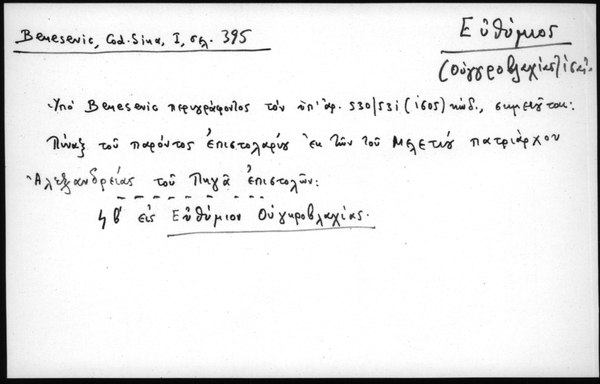 Benesevic, Cod. Sina, I, σελ. 395
Εὐθύμιος
(Οὑγγροβλαχίας)
Ὑπὸ Benesevic περιγράφοντος τὸν ὑπ' ἀρ. 530/531 (1605) κώδ., σημειοῦται:
Πίναξ τοῦ παρόντος ἐπιστολαρίου ἐκ τῶν τοῦ Μελετίου πατριάρχου
Ἀλεξανδρείας τοῦ Πηγᾶ ἐπιστολῶν:
β' εἰς Εὐθύμιον Οὑγκροβλαχίας.